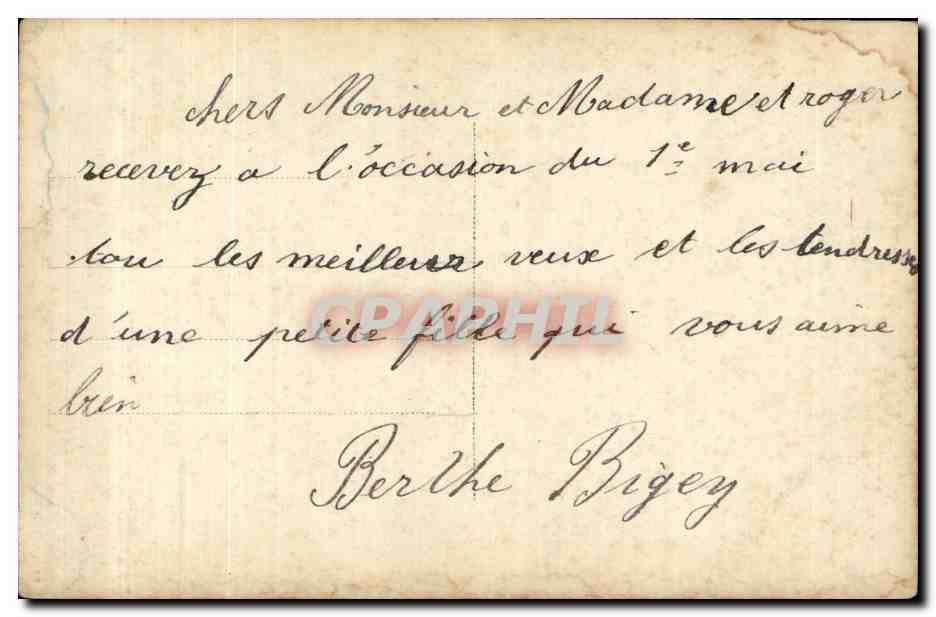 chers Monsieur et Madame et roger
recevez a l'occasion du 1e mai
tou les meilleur veux et les tendresse
d'une petite fille qui vous aime
bien
Berthe Bigey
CPAPHIL